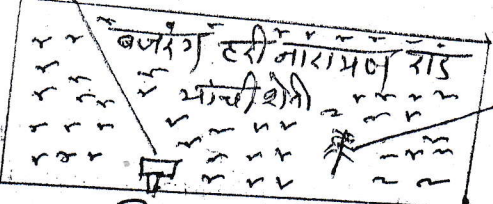 बजरंग हरी नारायण रांड
यांची शेती